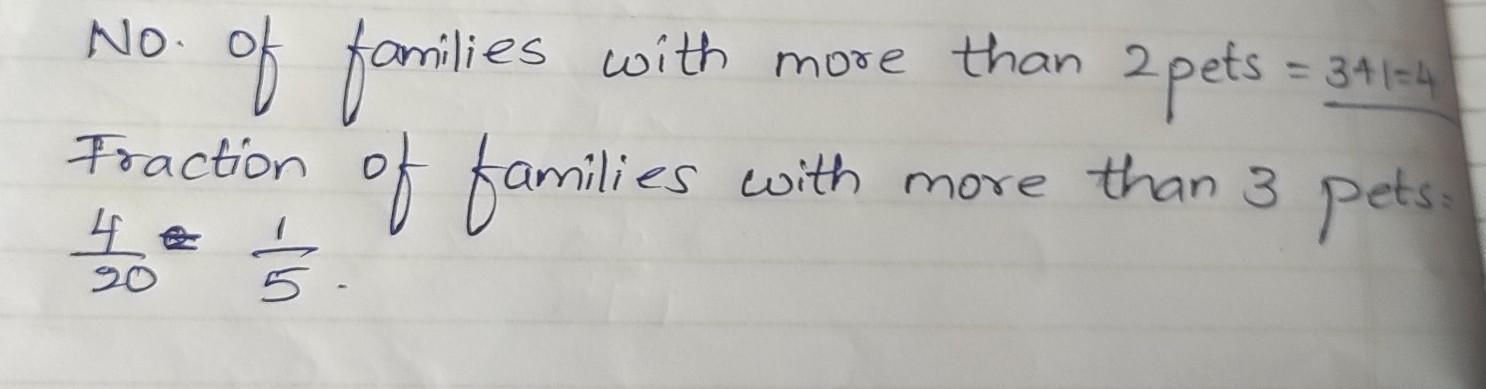 No. of families with more than 2 pets = 3+1=4
Fraction of families with more than 3 pets=
4/20 = 1/5.